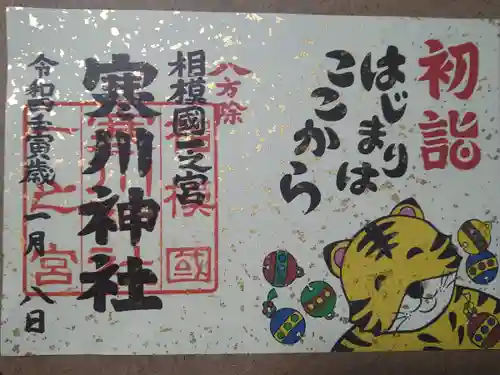 初詣
はじまりは
ここから
八方除
相模國一之宮
寒川神社
相模國
一之宮
令和四壬寅歳 一月 八日